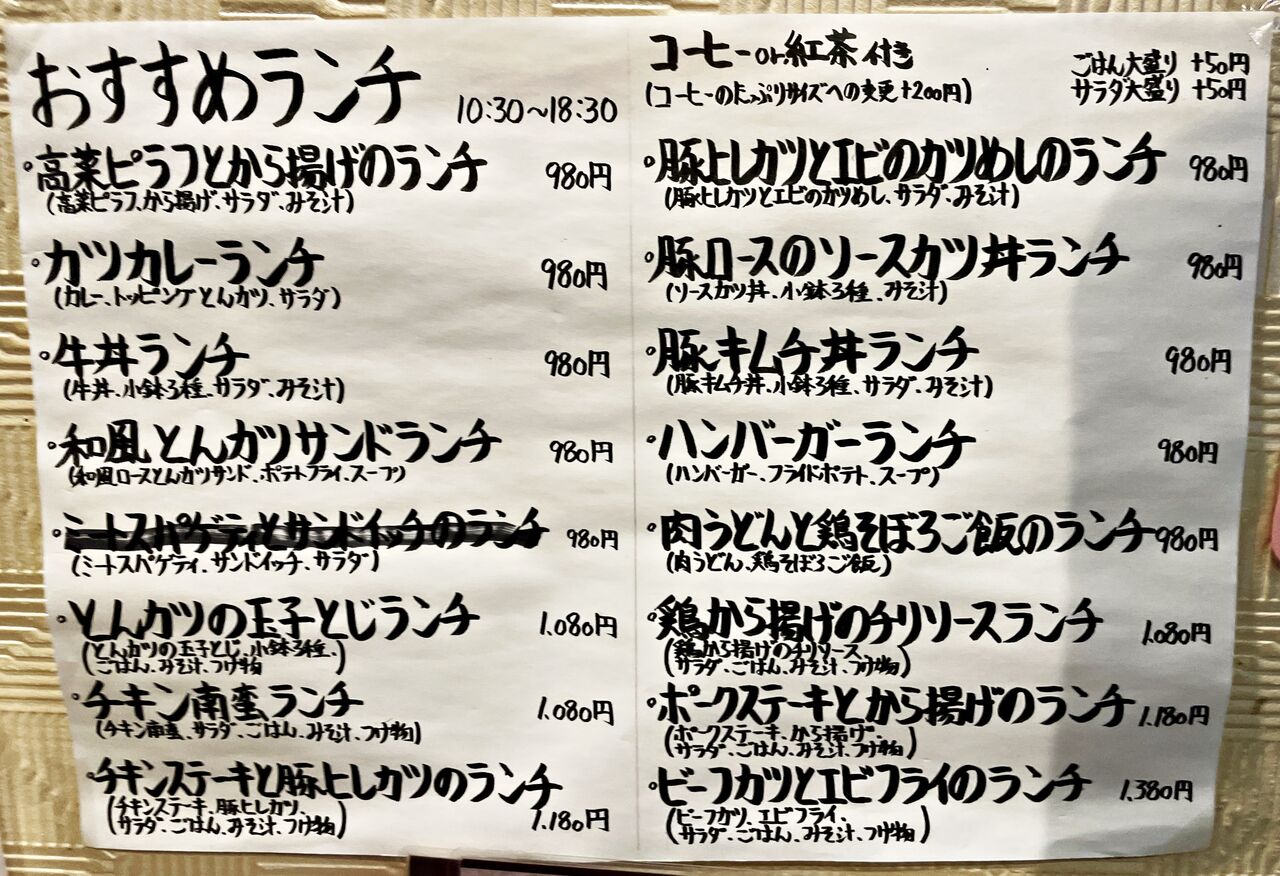 おすすめランチ 10:30〜18:30
・高菜ピラフとから揚げのランチ 980円
(高菜ピラフ、から揚げ、サラダ、みそ汁)
・カツカレーランチ 980円
(カレー、トッピングとんカツ、サラダ)
・牛丼ランチ 980円
(牛丼、小鉢3種、サラダ、みそ汁)
・和風とんカツサンドランチ 980円
(和風ロースとんカツサンド、ポテトフライ、スープ)
・ミートスパゲティとサンドイッチのランチ 980円
(ミートスパゲティ、サンドイッチ、サラダ)
・とんカツの玉子とじランチ 1.080円
(とんカツの玉子とじ、小鉢3種、
ごはん、みそ汁、つけ物)
・チキン南蛮ランチ 1.080円
(チキン南蛮、サラダ、ごはん、みそ汁、つけ物)
・チキンステーキと豚ヒレカツのランチ
(チキンステーキ、豚ヒレカツ、
サラダ、ごはん、みそ汁、つけ物) 1.180円
コーヒーor紅茶付き
(コーヒーのたっぷりサイズへの変更+200円)
ごはん大盛り +50円
サラダ大盛り +50円
・豚ヒレカツとエビのカツめしのランチ 980円
(豚ヒレカツとエビのカツめし、サラダ、みそ汁)
・豚ロースのソースカツ丼ランチ 980円
(ソースカツ丼、小鉢3種、みそ汁)
・豚キムチ丼ランチ 980円
(豚キムチ丼、小鉢3種、サラダ、みそ汁)
・ハンバーガーランチ 980円
(ハンバーガー、フライドポテト、スープ)
・肉うどんと鶏そぼろご飯のランチ 980円
(肉うどん、鶏そぼろご飯)
・鶏から揚げのチリソースランチ 1.080円
(鶏から揚げのチリソース、
サラダ、ごはん、みそ汁、つけ物)
・ポークステーキとから揚げのランチ 1.180円
(ポークステーキ、から揚げ、
サラダ、ごはん、みそ汁、つけ物)
・ビーフカツとエビフライのランチ 1.380円
(ビーフカツ、エビフライ、
サラダ、ごはん、みそ汁、つけ物)